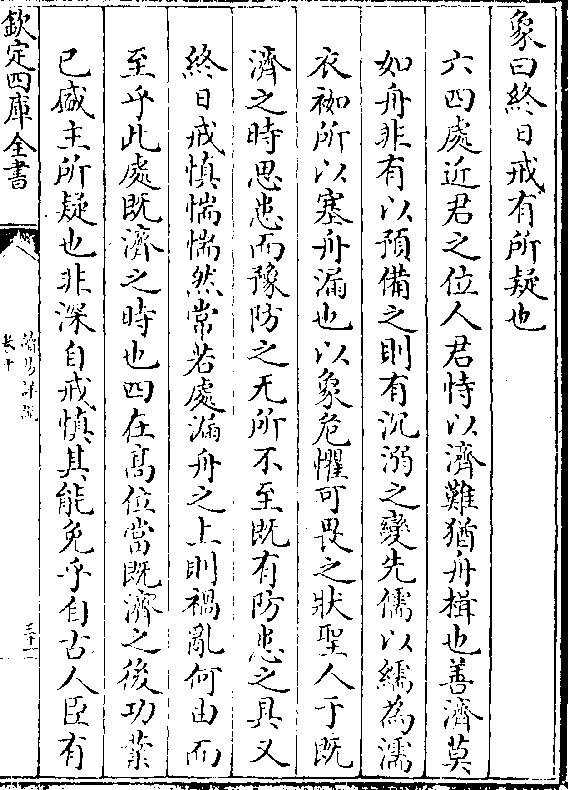 象曰終日戒有所疑也
六四處近君之位人君恃以濟難猶舟楫也善濟莫
如舟非有以預備之則有沉溺之變先儒以繻為濡
衣袽所以塞舟漏也以象危懼可畏之狀聖人于既
濟之時思患而豫防之无所不至既有防患之具又
終日戒慎惴惴然常若處漏舟之上則禍亂何由而
至乎此處既濟之時也四在髙位當既濟之後功業
已盛主所疑也非深自戒慎其能免乎自古人臣有
欽定四庫全書
卷十